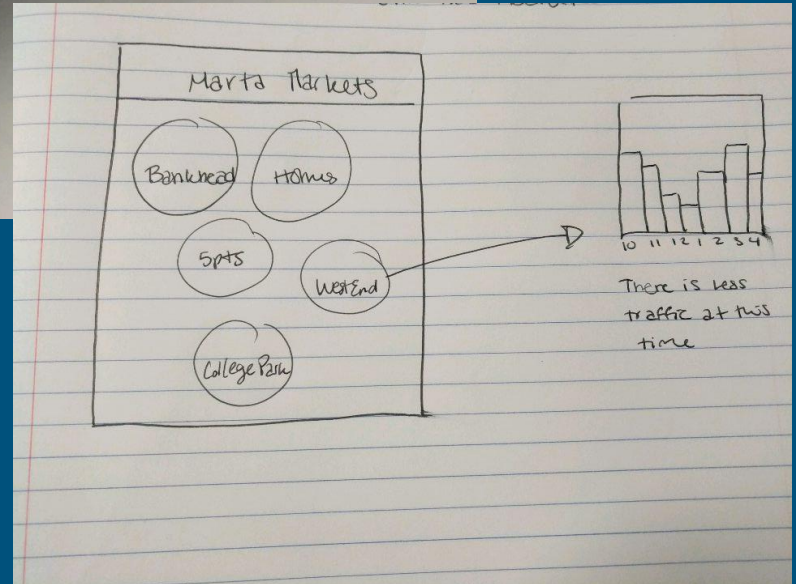 Marta Markets
Bankhead
Homes
5pts
West End
College Park
10 11 12 1 2 3 4
There is less
traffic at this
time